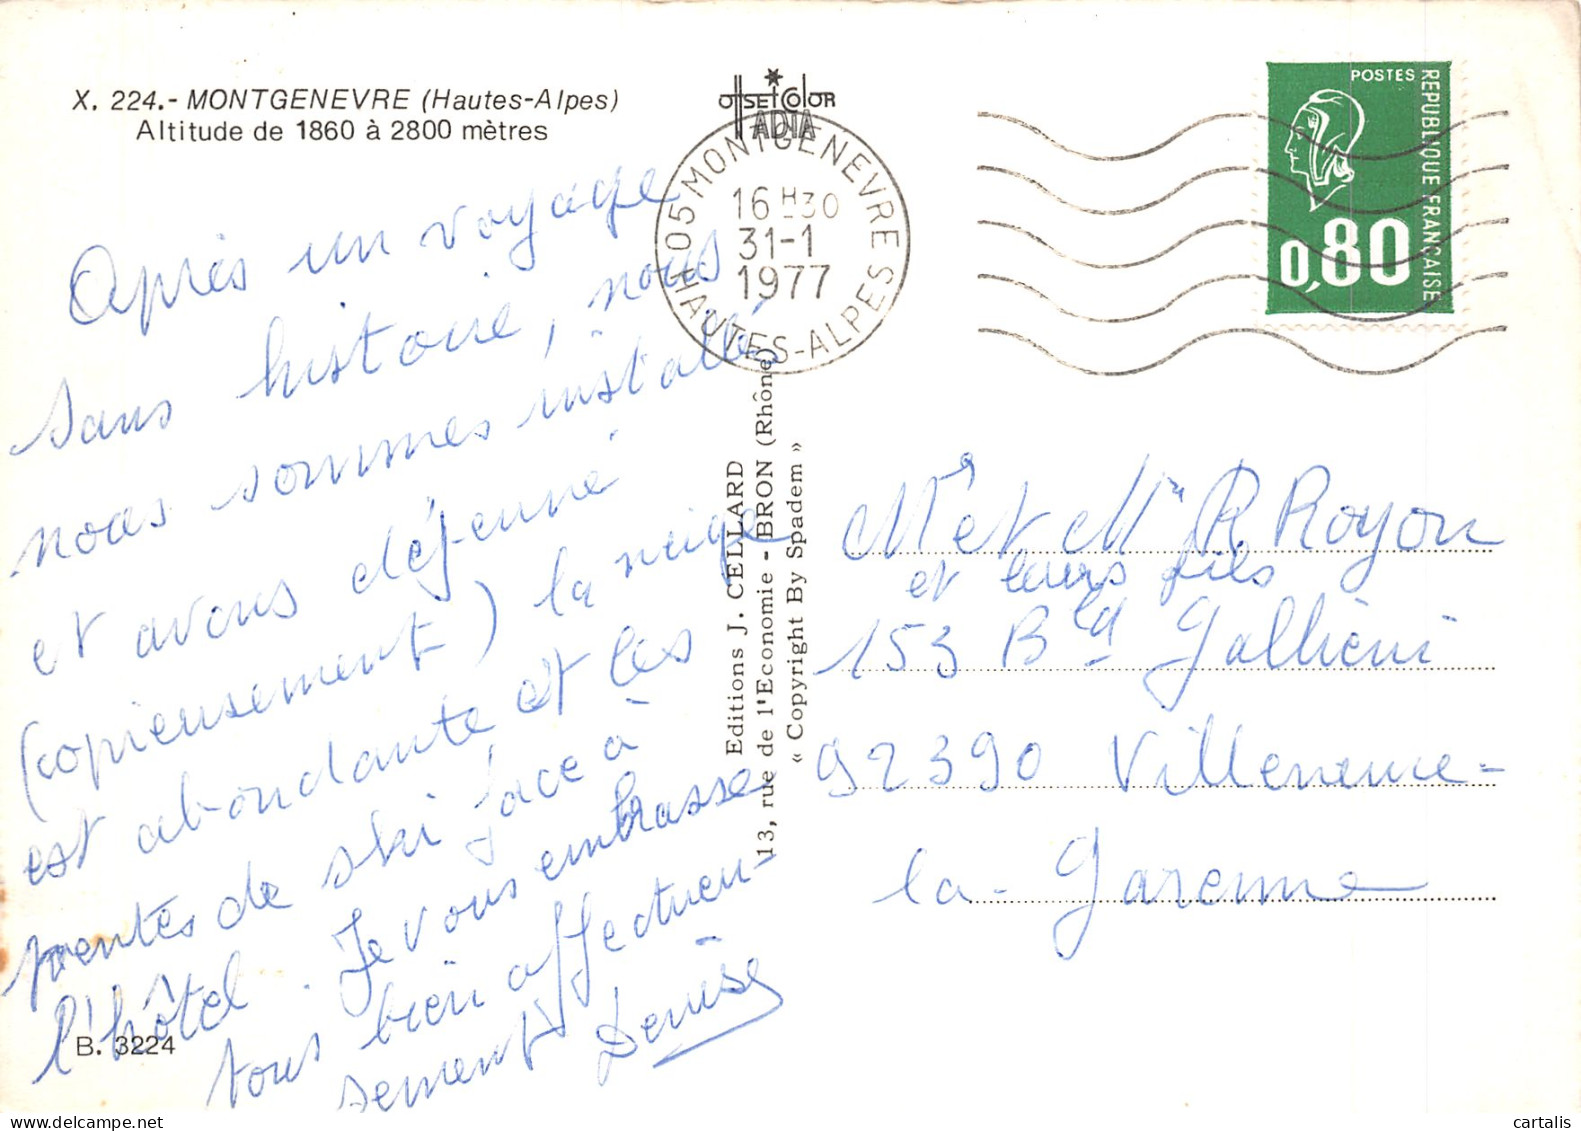 X. 224.- MONTGENEVRE (Hautes-Alpes)
Altitude de 1860 à 2800 mètres
OffSET COLOR
ADIA
05 MONTGENEVRE
16 H 30
31-1
1977
HAUTES-ALPES
POSTES
REPUBLIQUE FRANÇAISE
0,80
Après un voyage
sans histoire, nous
nous sommes installés
et avons déjeuné
(copieusement) la neige
est abondante et les
pentes de ski face à
l'hôtel. Je vous embrasse
tous bien affectueu-
sement Denise
Editions J. CELLARD
13, rue de l'Economie - BRON (Rhône)
« Copyright By Spadem »
Mr et Mme R. Royon
et leurs fils
153 Bd Galliéni
92390 Villeneuve-
la-Garenne
B. 3224
cartalis
www.delcampe.net